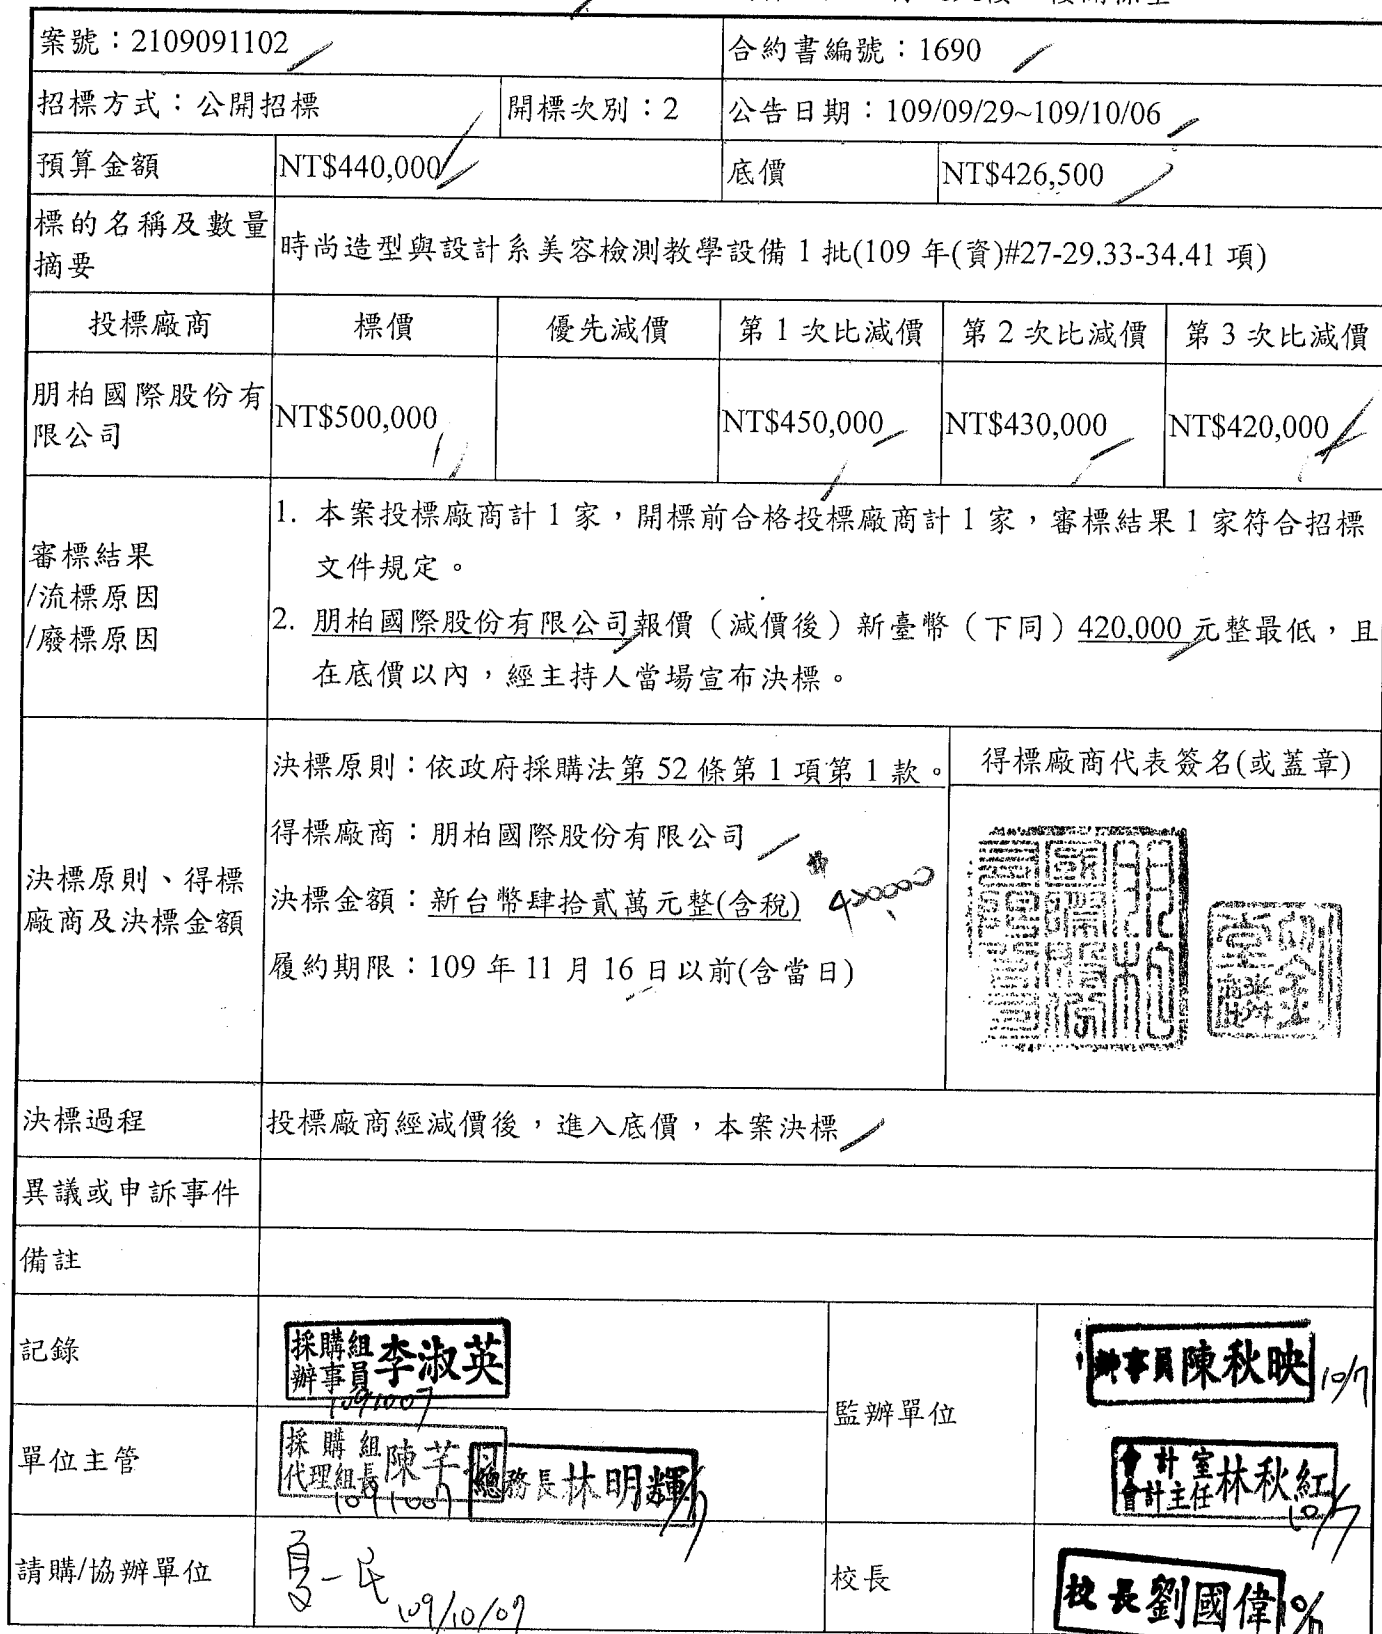 案號：2109091102
合約書編號：1690
招標方式：公開招標
開標次別：2
公告日期：109/09/29~109/10/06
預算金額
NT$440,000
底價
NT$426,500
標的名稱及數量
摘要
時尚造型與設計系美容檢測教學設備 1 批(109 年(資)#27-29.33-34.41 項)
投標廠商
標價
優先減價
第 1 次比減價
第 2 次比減價
第 3 次比減價
朋柏國際股份有
限公司
NT$500,000
NT$450,000
NT$430,000
NT$420,000
審標結果
/流標原因
/廢標原因
1. 本案投標廠商計 1 家，開標前合格投標廠商計 1 家，審標結果 1 家符合招標
文件規定。
2. 朋柏國際股份有限公司報價（減價後）新臺幣（下同）420,000 元整最低，且
在底價以內，經主持人當場宣布決標。
決標原則、得標
廠商及決標金額
決標原則：依政府採購法第 52 條第 1 項第 1 款。
得標廠商：朋柏國際股份有限公司
決標金額：新台幣肆拾貳萬元整(含稅)
420000
履約期限：109 年 11 月 16 日以前(含當日)
得標廠商代表簽名(或蓋章)
決標過程
投標廠商經減價後，進入底價，本案決標
異議或申訴事件
備註
記錄
採購組
辦事員 李淑英
1091007
監辦單位
辦事員 陳秋映 10/7
單位主管
採購組
代理組長 陳芊
1091007
總務長 林明輝
會計室
會計主任 林秋紅
10/7
請購/協辦單位
夏一民
109/10/07
校長
校長 劉國偉